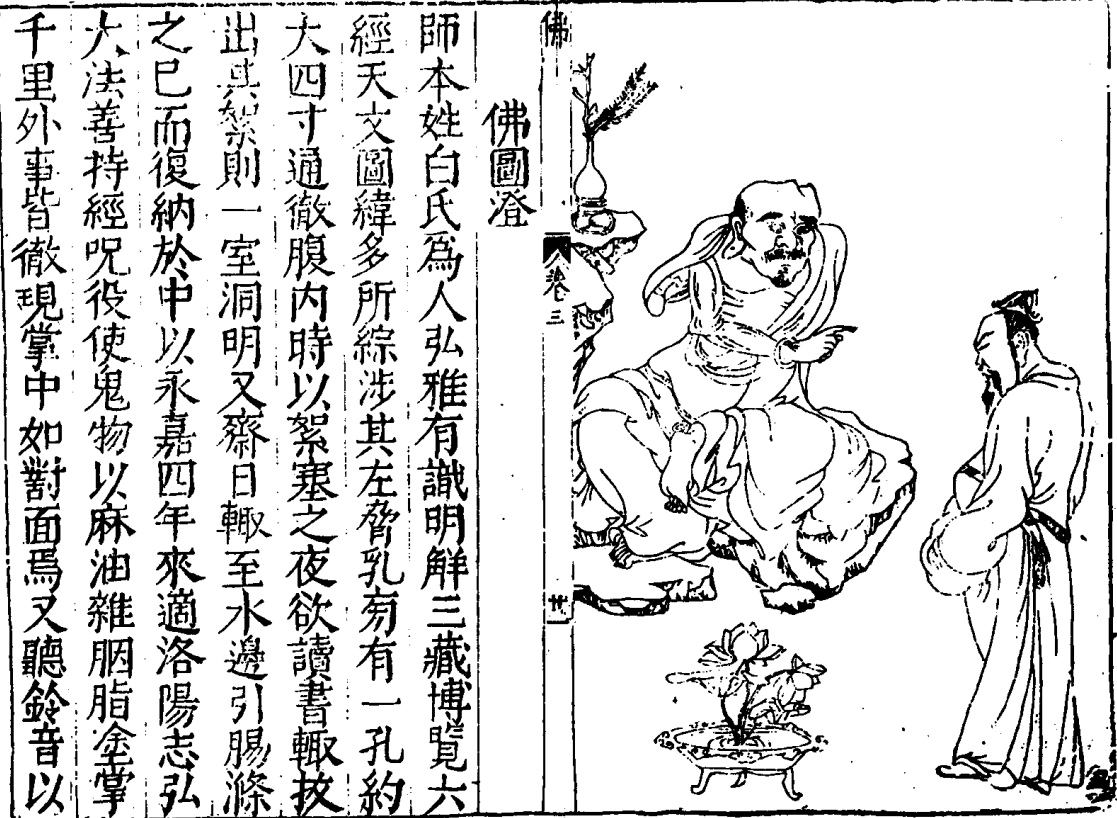 佛
卷三
廿
佛圖澄
師本姓白氏爲人弘雅有識明解三藏博覽六
經天文圖緯多所綜涉其左脅乳旁有一孔約
大四寸通徹腹内時以絮塞之夜欲讀書輙拔
出其絮則一室洞明又齋日輙至水邊引腸滌
之已而復納於中以永嘉四年來適洛陽志弘
大法善持經呪役使鬼物以麻油雜胭脂塗掌
千里外事皆徹現掌中如對面焉又聽鈴音以